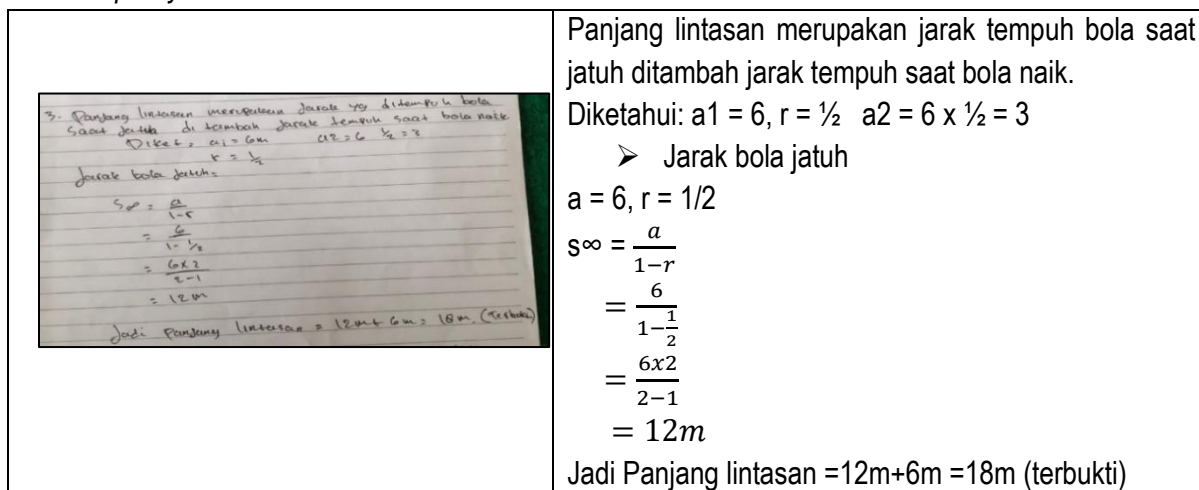 3. Panjang lintasan merupakan Jarak yg ditempuh bola
saat jatuh di tambah Jarak tempuh saat bola naik
Diket = a1 = 6m a2 = 6 ½ = 3
r = ½
Jarak bola jatuh =
S∞ = a/1-r
= 6/1-½
= 6x2/2-1
= 12 m
Jadi Panjang lintasan = 12m + 6m = 18m. (Terbukti)
Panjang lintasan merupakan jarak tempuh bola saat
jatuh ditambah jarak tempuh saat bola naik.
Diketahui: a1 = 6, r = ½ a2 = 6 x ½ = 3
➢ Jarak bola jatuh
a = 6, r = 1/2
s∞ = a/1−r
= 6/1−1/2
= 6x2/2−1
= 12m
Jadi Panjang lintasan =12m+6m =18m (terbukti)